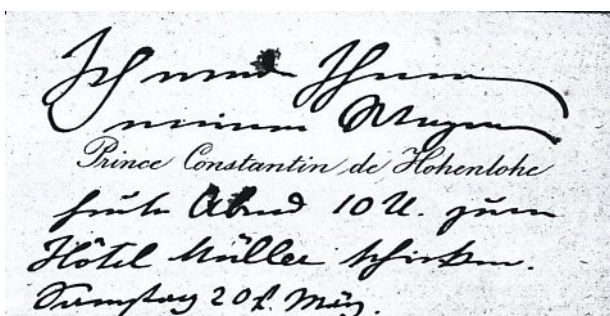 Ich werde Ihnen
meinen Wagen
Prince Constantin de Hohenlohe
heute Abend 10 U. zum
Hôtel Müller schicken.
Samstag 20t. März.